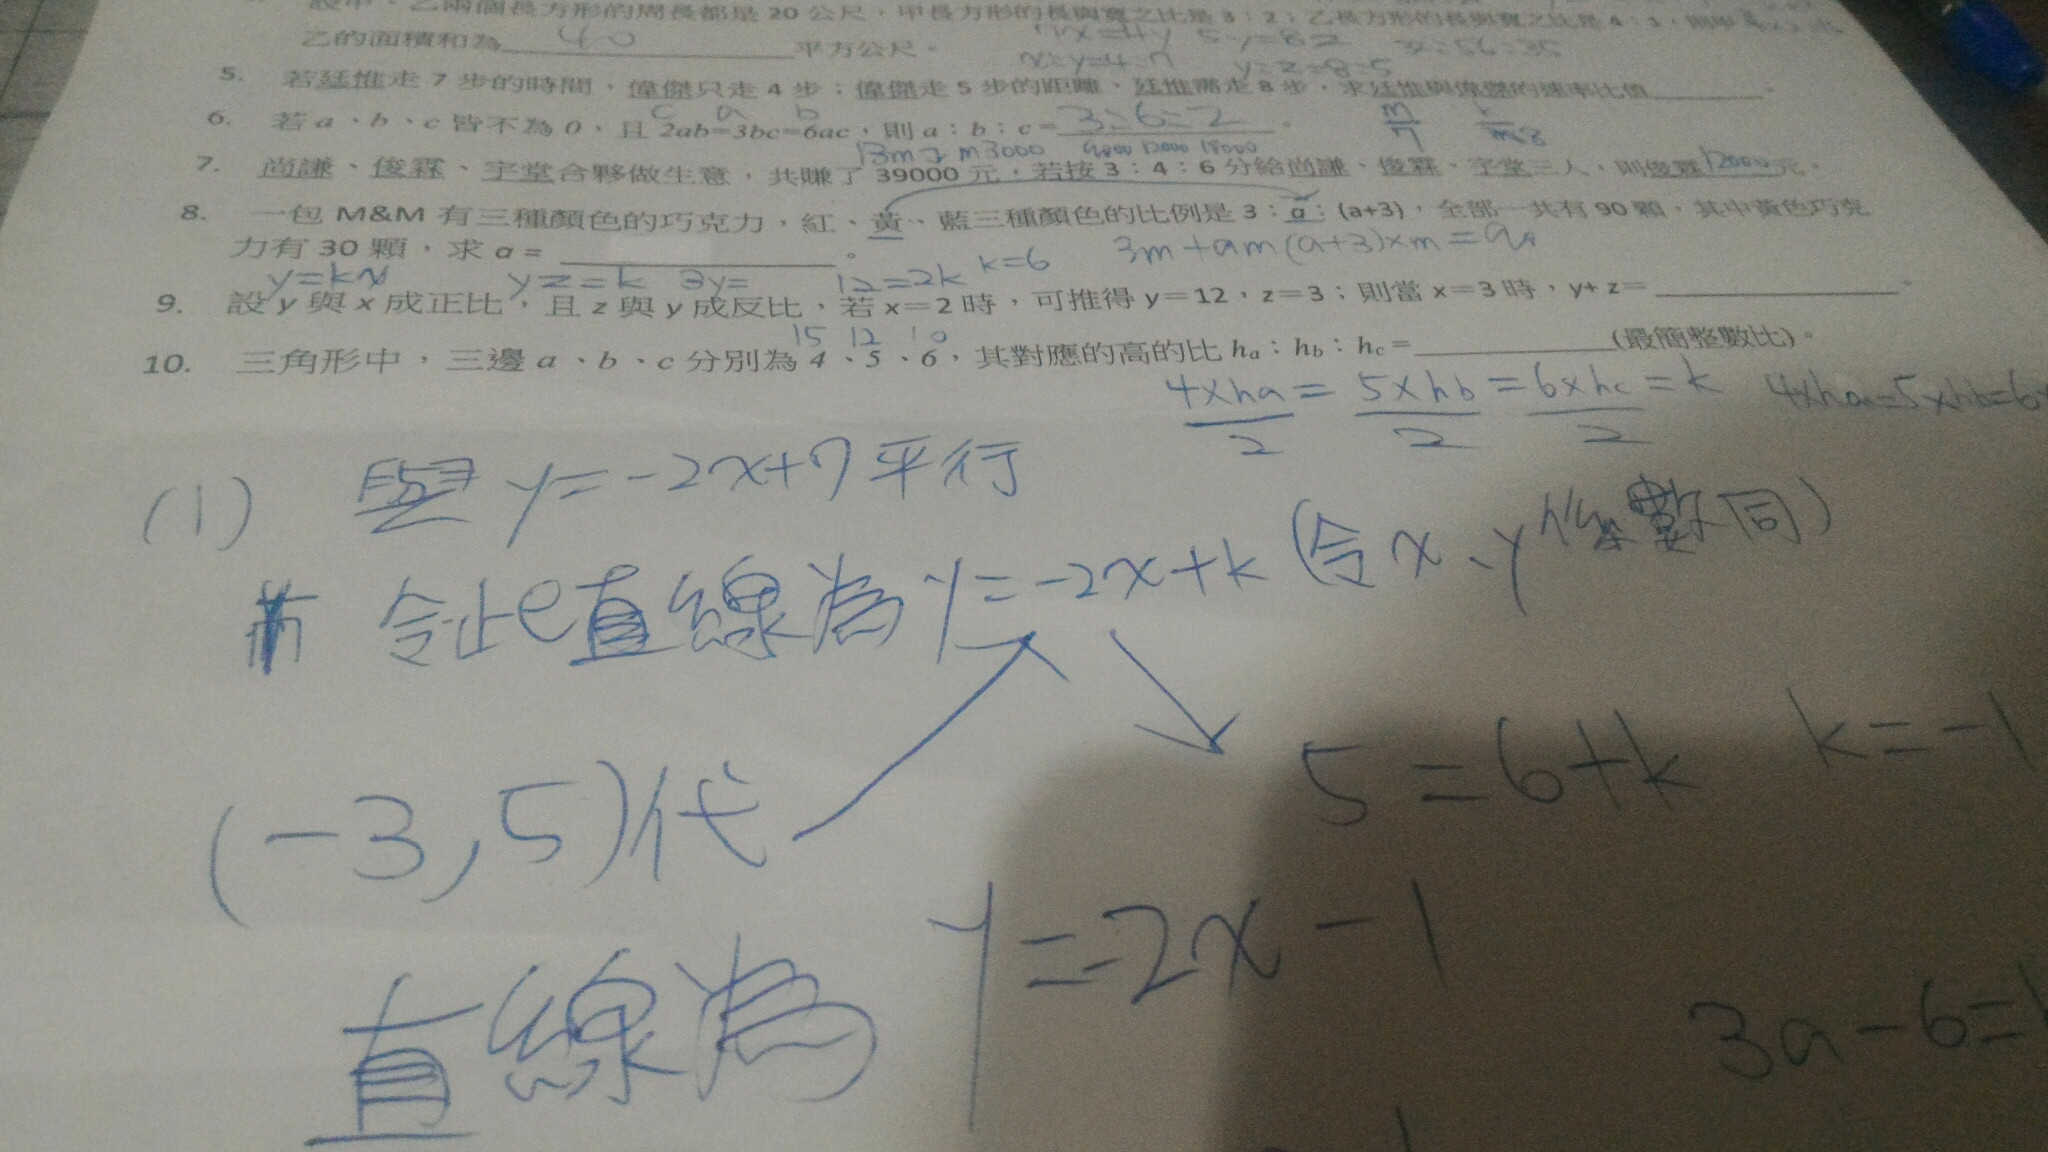 設甲、乙兩個長方形的周長都是 20 公尺，甲長方形的長與寬之比是 3：2；乙長方形的長與寬之比是 4：1，則甲
乙的面積和為 40 平方公尺。
7x=4y 5y=8z
x=y=4=7 y=z=8=5
3z=56=35
5. 若廷惟走 7 步的時間，偉傑只走 4 步；偉傑走 5 步的距離，廷惟需走 8 步，求廷惟與偉傑的速率比值
c a b
6. 若 a、b、c 皆不為 0，且 2ab=3bc=6ac，則 a：b：c= 3=6=2 。
13m m3000 9000 12000 18000
7. 尚謙、俊霖、宇堂合夥做生意，共賺了 39000 元，若按 3：4：6 分給尚謙、俊霖、宇堂三人，則俊霖 12000 元。
8. 一包 M&M 有三種顏色的巧克力，紅、黃、藍三種顏色的比例是 3：a：(a+3)，全部一共有 90 顆，其中黃色巧克
力有 30 顆，求 a = 。
3m+am(a+3)×m=90
y=kx yz=k 3y= 12=2k k=6
9. 設 y 與 x 成正比，且 z 與 y 成反比，若 x=2 時，可推得 y=12，z=3；則當 x=3 時，y+ z= 。
15 12 10
10. 三角形中，三邊 a、b、c 分別為 4、5、6，其對應的高的比 ha：hb：hc = (最簡整數比)。
4×ha/2 = 5×hb/2 = 6×hc/2 = k 4×ha=5×hb=6×
(1) 與 y=-2x+7 平行
令此直線為 y=-2x+k (令 x、y 係數同)
(-3,5)代
5=6+k k=-1
直線為 y=-2x-1
3a-6=